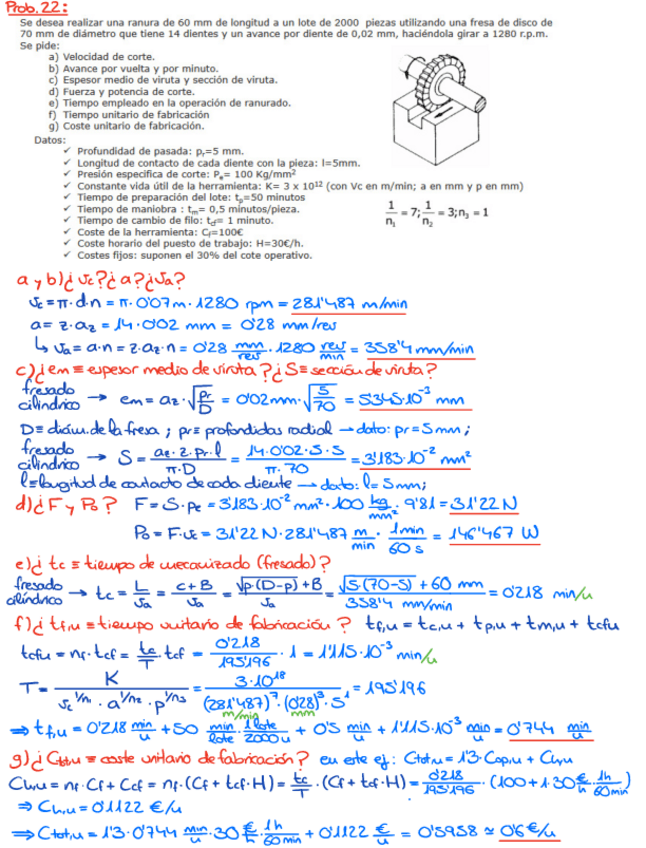 Prob.22:
Se desea realizar una ranura de 60 mm de longitud a un lote de 2000 piezas utilizando una fresa de disco de
70 mm de diámetro que tiene 14 dientes y un avance por diente de 0,02 mm, haciéndola girar a 1280 r.p.m.
Se pide:
a) Velocidad de corte.
b) Avance por vuelta y por minuto.
c) Espesor medio de viruta y sección de viruta.
d) Fuerza y potencia de corte.
e) Tiempo empleado en la operación de ranurado.
f) Tiempo unitario de fabricación
g) Coste unitario de fabricación.
Datos:
✓ Profundidad de pasada: pr=5 mm.
✓ Longitud de contacto de cada diente con la pieza: l=5mm.
✓ Presión especifica de corte: Pe= 100 Kg/mm²
✓ Constante vida útil de la herramienta: K= 3 x 10¹² (con Vc en m/min; a en mm y p en mm)
✓ Tiempo de preparación del lote: tp=50 minutos
✓ Tiempo de maniobra : tm= 0,5 minutos/pieza.
✓ Tiempo de cambio de filo: tcf= 1 minuto.
✓ Coste de la herramienta: Cf=100€
✓ Coste horario del puesto de trabajo: H=30€/h.
✓ Costes fijos: suponen el 30% del cote operativo.
1/n₁ = 7; 1/n₂ = 3; n₃ = 1
a y b) ¿ Vc? ¿ a? ¿ Va?
Vc = π · d · n = π · 0'07 m · 1280 rpm = 281'487 m/min
a = z · az = 14 · 0'02 mm = 0'28 mm/rev
↳ Va = a · n = z · az · n = 0'28 mm/rev · 1280 rev/min = 358'4 mm/min
c) ¿ em ≡ espesor medio de viruta? ¿ S ≡ sección de viruta?
fresado cilíndrico → em = az · √(pr/D) = 0'02 mm · √(5/70) = 5'345·10⁻³ mm
D ≡ diám. de la fresa ; pr ≡ profundidad radial → dato: pr = 5 mm ;
fresado cilíndrico → S = (az · z · pr · l)/(π · D) = (14 · 0'02 · 5 · 5)/(π · 70) = 3'183·10⁻² mm²
l ≡ longitud de contacto de cada diente → dato: l = 5 mm;
d) ¿ F y Po ? F = S · Pe = 3'183·10⁻² mm² · 100 kg/mm² · 9'81 = 31'22 N
Po = F · Vc = 31'22 N · 281'487 m/min · 1 min/60 s = 146'467 W
e) ¿ tc ≡ tiempo de mecanizado (fresado) ?
fresado cilíndrico → tc = L/Va = (c + B)/Va = (√(p (D-p)) + B)/Va = (√(5 (70-5)) + 60 mm)/(358'4 mm/min) = 0'218 min/u
f) ¿ tf,u ≡ tiempo unitario de fabricación ? tf,u = tc,u + tp,u + tm,u + tcfu
tcfu = nf · tcf = tc/T · tcf = 0'218/195'196 · 1 = 1'115·10⁻³ min/u
T = K/(Vc^(1/n₁) · a^(1/n₂) · p^(1/n₃)) = 3·10¹⁸/((281'487)⁷ · (0'28)³ · 5¹) = 195'196
m/min mm
⇒ tf,u = 0'218 min/u + 50 min/lote · 1 lote/2000 u + 0'5 min/u + 1'115·10⁻³ min/u = 0'744 min/u
g) ¿ Ctot,u ≡ coste unitario de fabricación? en este ej: Ctot,u = 1'3 · Cop,u + Ch,u
Ch,u = nf · Cf + Ccf = nf · (Cf + tcf · H) = tc/T · (Cf + tcf · H) = 0'218/195'196 · (100 + 1 · 30 €/h · 1h/60min)
⇒ Ch,u = 0'1122 €/u
⇒ Ctot,u = 1'3 · 0'744 min/u · 30 €/h · 1h/60min + 0'1122 €/u = 0'5958 ≃ 0'6 €/u